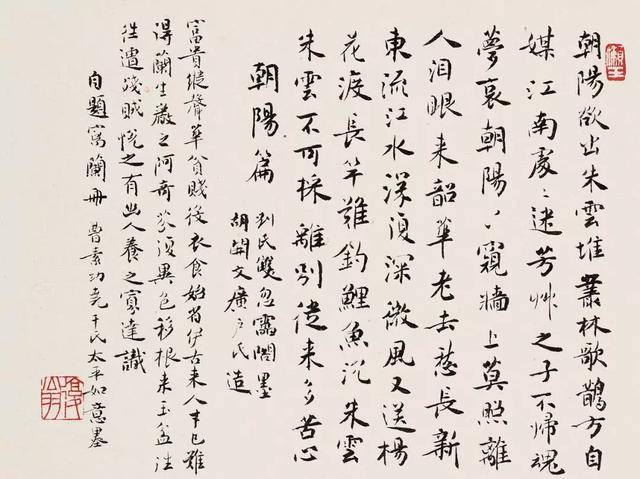 朝陽欲出朱雲堆叢林歌鵲方自
媒江南處〻迷芳艸之子不歸魂
夢哀朝陽〻窺牆上莫照離
人淚眼来韶華老去愁長新
東流江水深復深微風又送楊
花渡長竿難釣鯉魚沉朱雲
朱雲不可採離別從来多苦心
朝陽篇
劉氏雙忽雷閣墨
胡開文廣户氏造
富貴縱奢華貧賤役衣食始者伊古来人才已難
得蘭生巖之阿奇姿復異色移根来玉盆往
往遭殘賊慨之有幽人養之寡達識
自題寫蘭冊 曹素功堯千氏太平如意墨